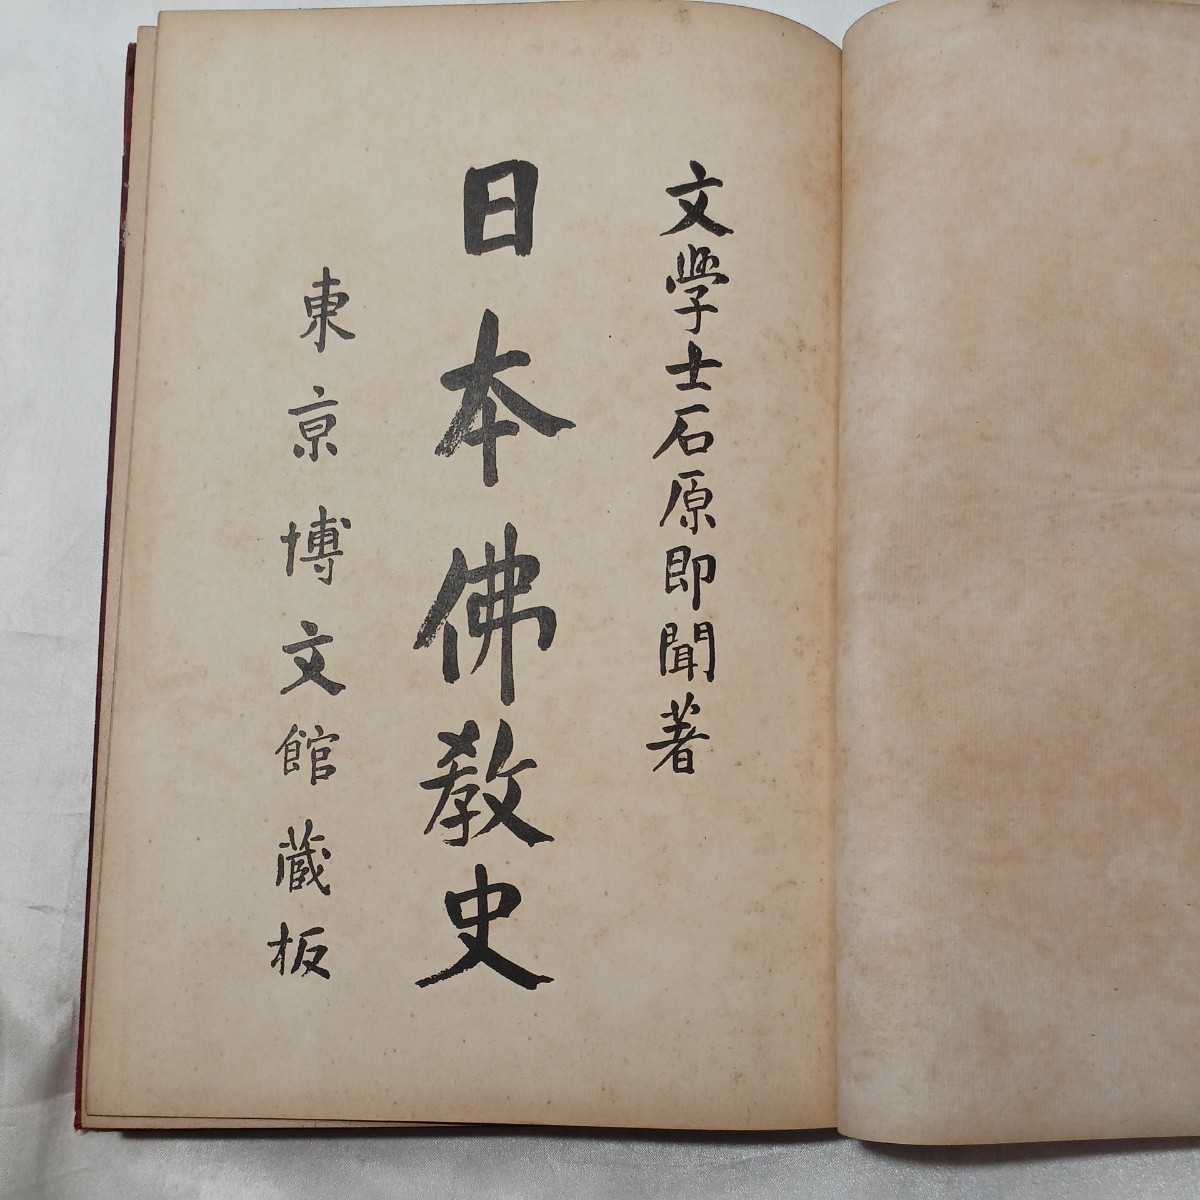 文学士石原即聞著
日本佛教史
東京博文館蔵板